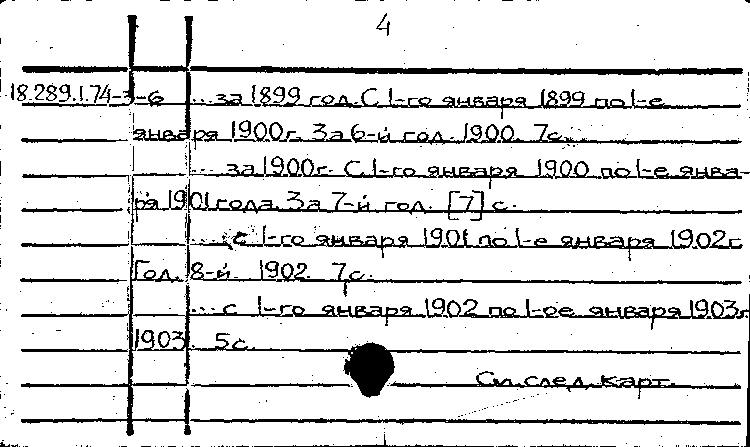 4
18.289.1.74-3-6 ...за 1899 год. С 1-го января 1899 по 1-е
января 1900г. За 6-й год. 1900. 7с.
...за 1900г. С 1-го января 1900 по 1-е янва-
ря 1901 года. За 7-й год. [7] с.
...с 1-го января 1901 по 1-е января 1902г.
Год. 8-й. 1902. 7с.
...с 1-го января 1902 по 1-ое января 1903г.
1903. 5с.
См. след. карт.